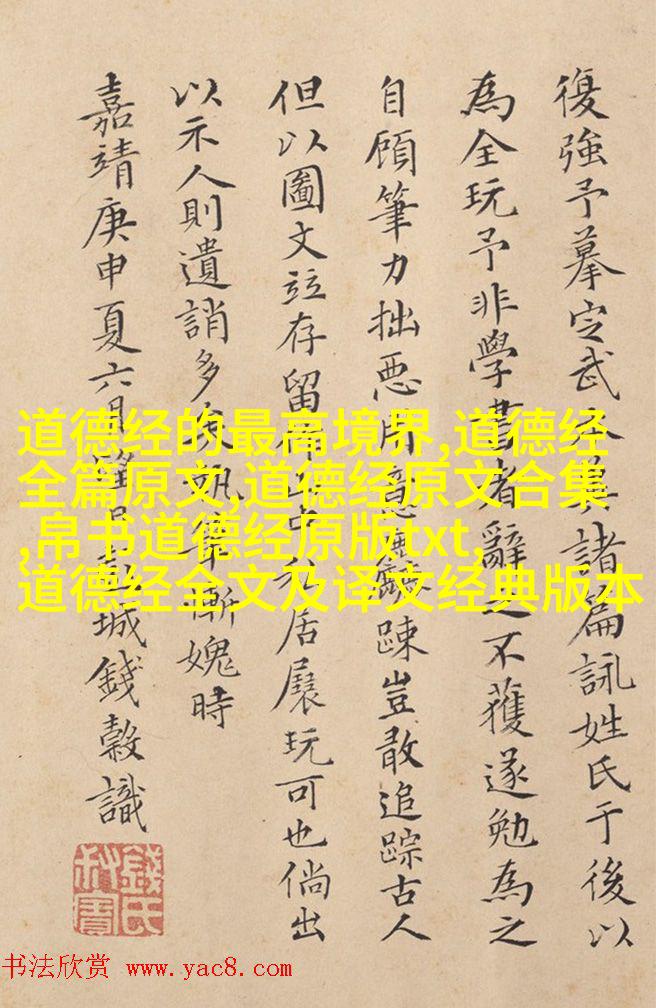 復強予摹定武諸篇詠姓氏于後以
為全玩予非學書者辭之不獲遂勉為之
自顧筆力拙惡用踈豈敢追踪古人
但以圖文竝存留居展玩可也倘出
以示人則遺誚多矣執筆慚媿時
嘉靖庚申夏六月彭城錢穀識
錢氏叔寶
道德经的最高境界,道德经
全篇原文,道德经原文合集
,帛书道德经原版txt,
道德经全文及译文经典版本
书法欣赏 www.yac8.com